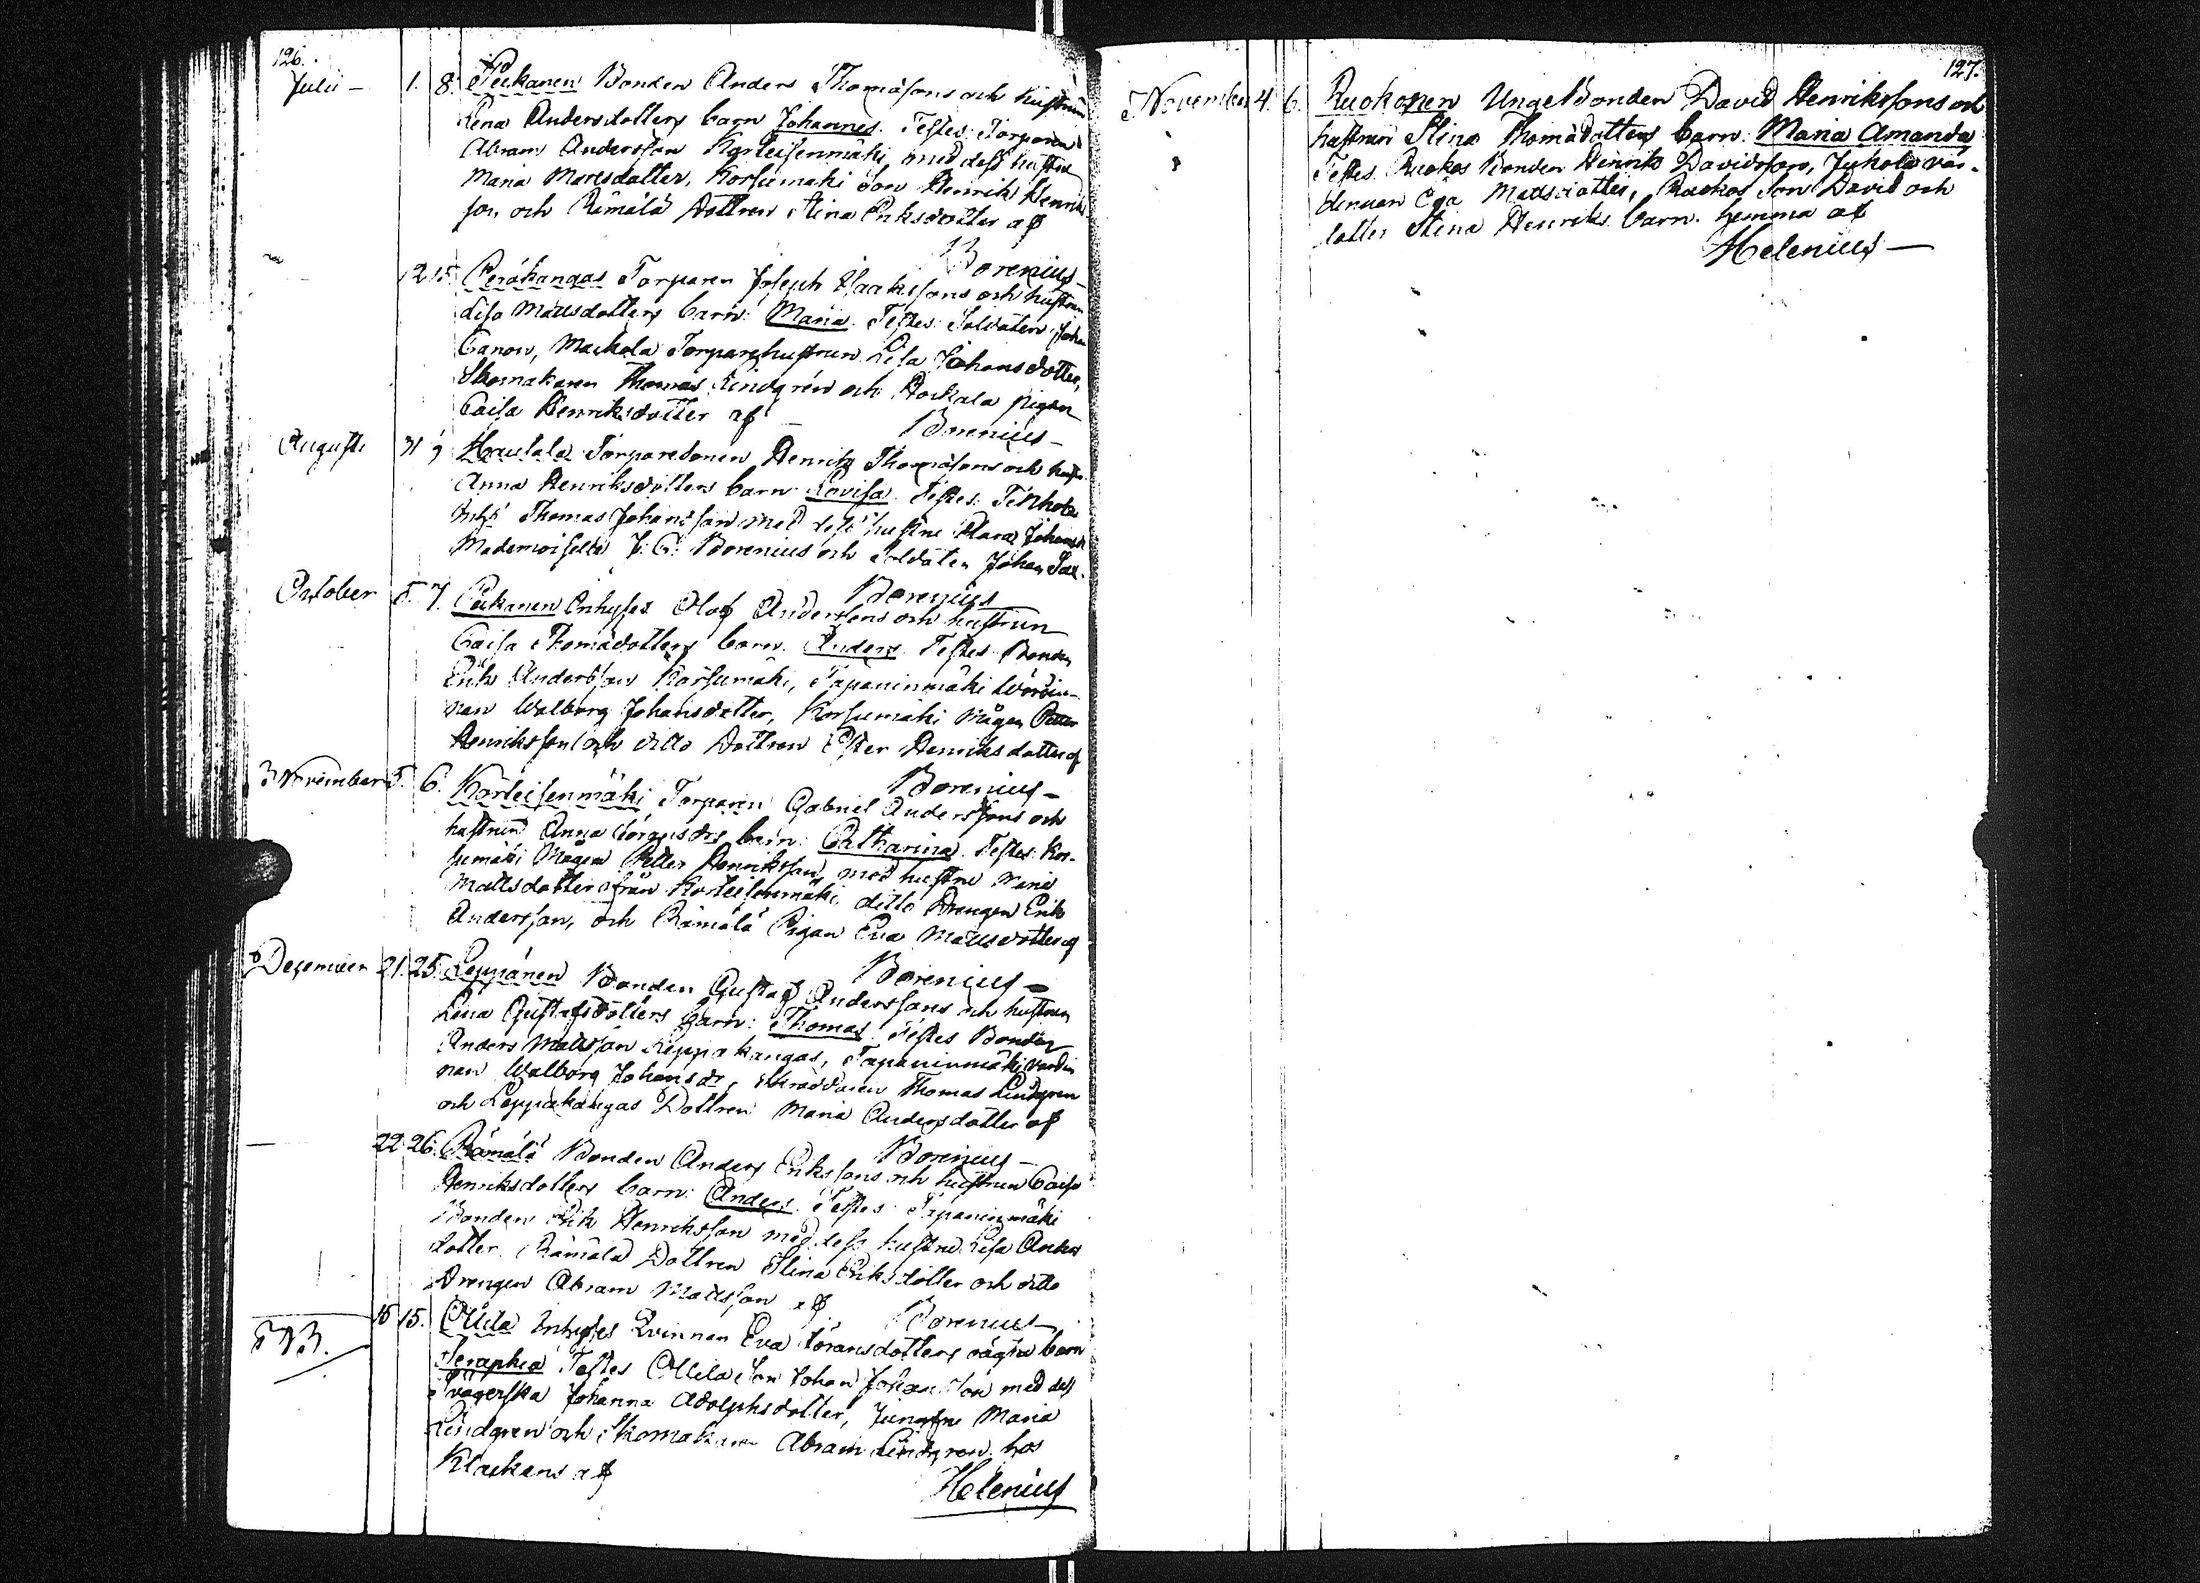 126.
Julii – 1. 8. Peekanen Bonden Anders Thomäsons och hustrun
Lena Andersdotters barn Johannes. Testes: Torparen
Abram Andersson Korteisenmäki, med dess hustru
Maria Mattsdotter, Korsumäki Son Henrik Henrik-
son, och Rämälä Dottren Stina Eriksdotter af
Borenius –
12 15. Peräkangas Torparen Joseph Isaakssons och hustrun
Lisa Mattsdotters barn: Maria. Testes: Soldaten Johan
Canon, Torparehustrun Lisa Johansdotter,
Skomakaren Thomas Lindgren och Hockala pigan
Caisa Henriksdotter af
Borenius –
Augusti 31 9 Hautala Torparesonen Henrik Thomäsons och hustr.
Anna Henriksdotters barn Lovisa. Testes:
Inhs Thomas Johansson med dess hustru Clara Johansd
Mademoiselle J: G: Borenius och Soldaten Johan Sax.
Borenius
October 5. 7. Peekanen Inhyses Olof Anderssons och hustrun
Caisa Thomädotters barn. Anders. Testes: Bonden
Erik Andersson Korsumäki, Tapaninmäki Wärdin-
nan Walborg Johansdotter, Korsumäki Mågen Petter
Henriksson och ditto Dottren Ester Henriksdotter af
Borenius –
November 5. 6. Korteisenmäki Torparen Gabriel Anderssons och
hustrun Anna Göransdrs barn: Catharina. Testes: Kor-
sumäki Mågen Petter Henriksson med hustru Maria
Mattsdotter från Korteisenmäki, ditto Drengen Erik
Andersson, och Rämälä Pigan Eva Mattsdotter af
Borenius –
December 21. 25. Leppänen Bonden Gustaf Anderssons och hustrun
Lena Gustafsdotters barn: Thomas. Testes Bonden
Anders Mattsson Leppäkangas, Tapaninmäki värdin
nan Walborg Johansdr, Skräddaren Thomas Lindgren
och Leppäkangas Dottren Maria Andersdotter af
Borenius –
22. 26. Rämälä Bonden Anders Erikssons och hustrun Caisa
Henriksdotters barn: Anders. Testes: Tapaninmäki
Bonden Erik Henriksson med dess hustru Lisa Anders
dotter, Rämälä Dottren Stina Eriksdotter och ditto
Drengen Abram Mattsson af
Borenius –
NB. 15 15. Ollila Inhyses Qvinnan Eva Göransdotters oägta barn
Seraphia Testes Ollila Son Johan Johansson med dess
svägerska Johanna Adolphsdotter, Jungfru Maria
Lindgren och Skomakaren Abram Lindgren hos
Klackans af
Helenius
127.
November 4. 6. Ruokonen Ungebonden David Henrikssons och
hustrun Stina Thomädotters barn: Maria Amanda
Testes. Ruokos Bonden Henrik Davidsson, Juhola vär-
dinnan Eva Mattsdotter, Ruokos Son David och
dotter Stina Henriks barn. hemma af
Helenius –